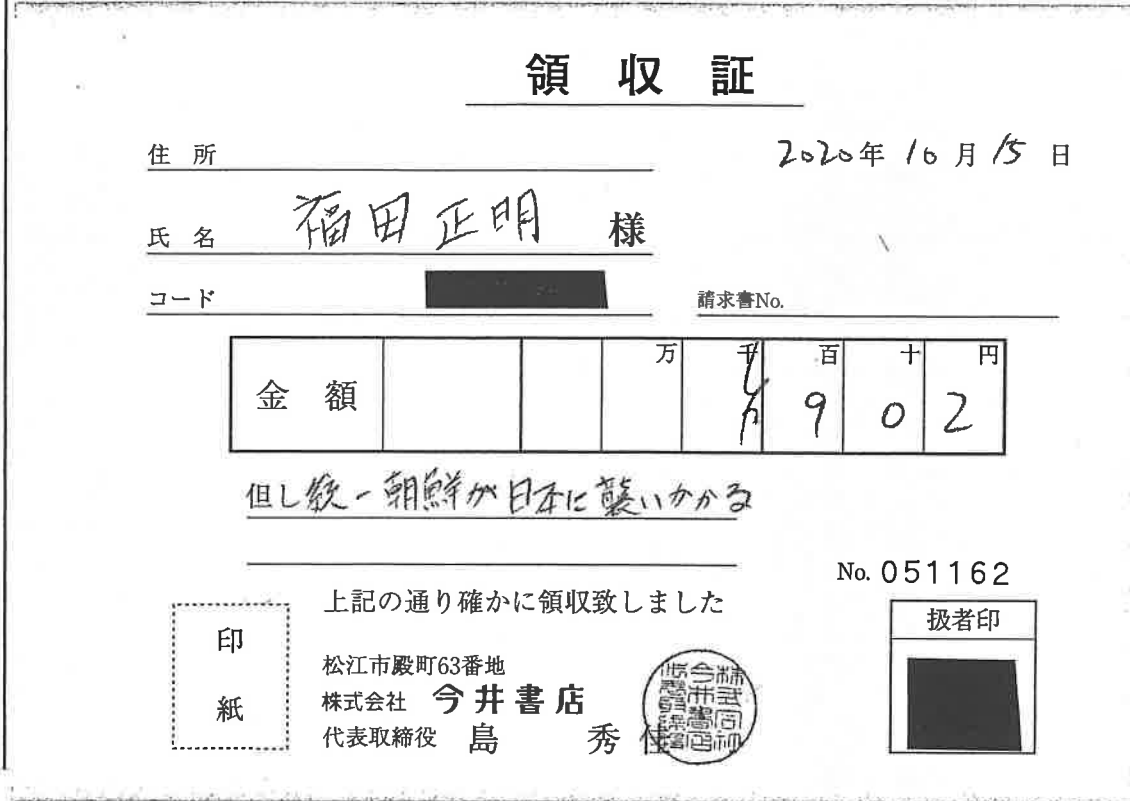 領収証
住所
2020年10月15日
氏名 福田正明 様
コード
請求書No.
金額 万 千 百 十 円
9 0 2
但し統一朝鮮が日本に襲いかかる
No. 051162
上記の通り確かに領収致しました
扱者印
印紙
松江市殿町63番地
株式会社 今井書店
代表取締役 島 秀佳